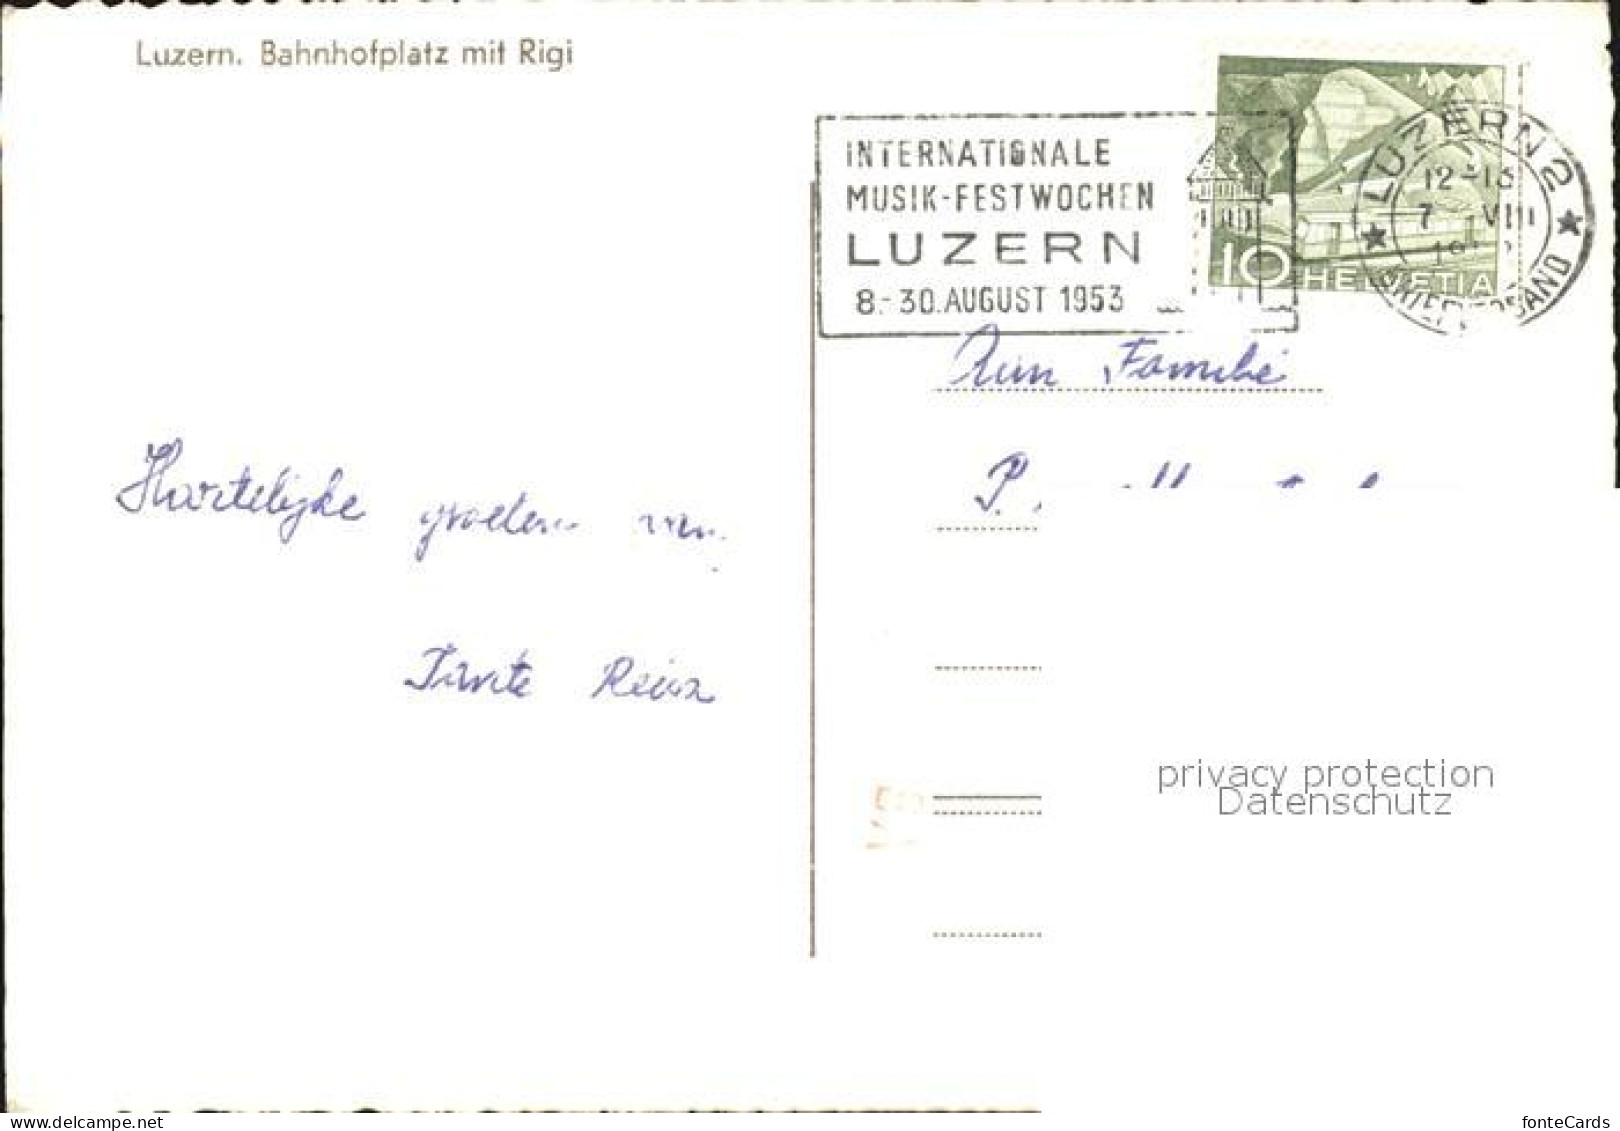 Luzern. Bahnhofplatz mit Rigi
INTERNATIONALE
MUSIK-FESTWOCHEN
LUZERN
8.-30. AUGUST 1953
LUZERN 2
12-13
7 VIII
BRIEFVERSAND
10 HELVETIA
Familie
P.
Hartelijke groeten van
Tante
privacy protection
Datenschutz
delcampe.net
fonteCards